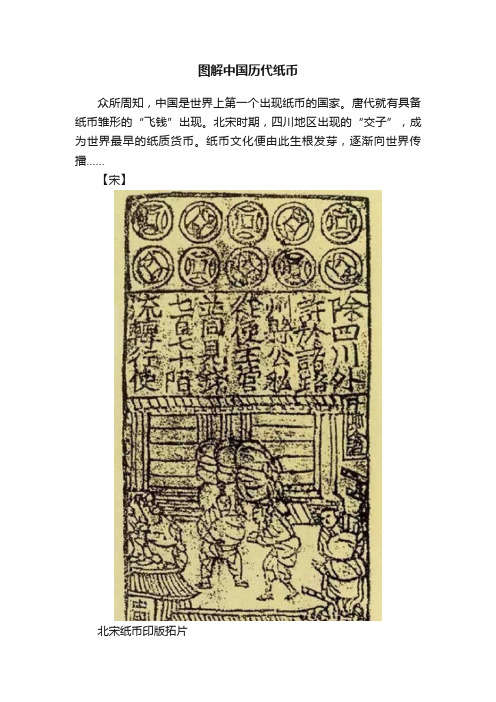 图解中国历代纸币
众所周知，中国是世界上第一个出现纸币的国家。唐代就有具备
纸币雏形的“飞钱”出现。北宋时期，四川地区出现的“交子”，成
为世界最早的纸质货币。纸币文化便由此生根发芽，逐渐向世界传
播......
【宋】
除四川外
許於諸路
州縣公私
從便主管
並同見錢
七百七十陌
流轉行使
北宋纸币印版拓片